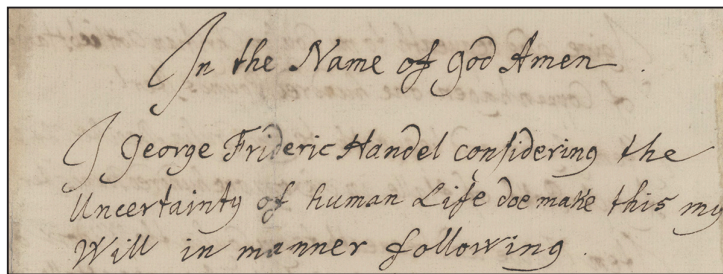 In the Name of God Amen .
I George Frideric Handel considering the
Uncertainty of human Life doe make this my
Will in manner following .